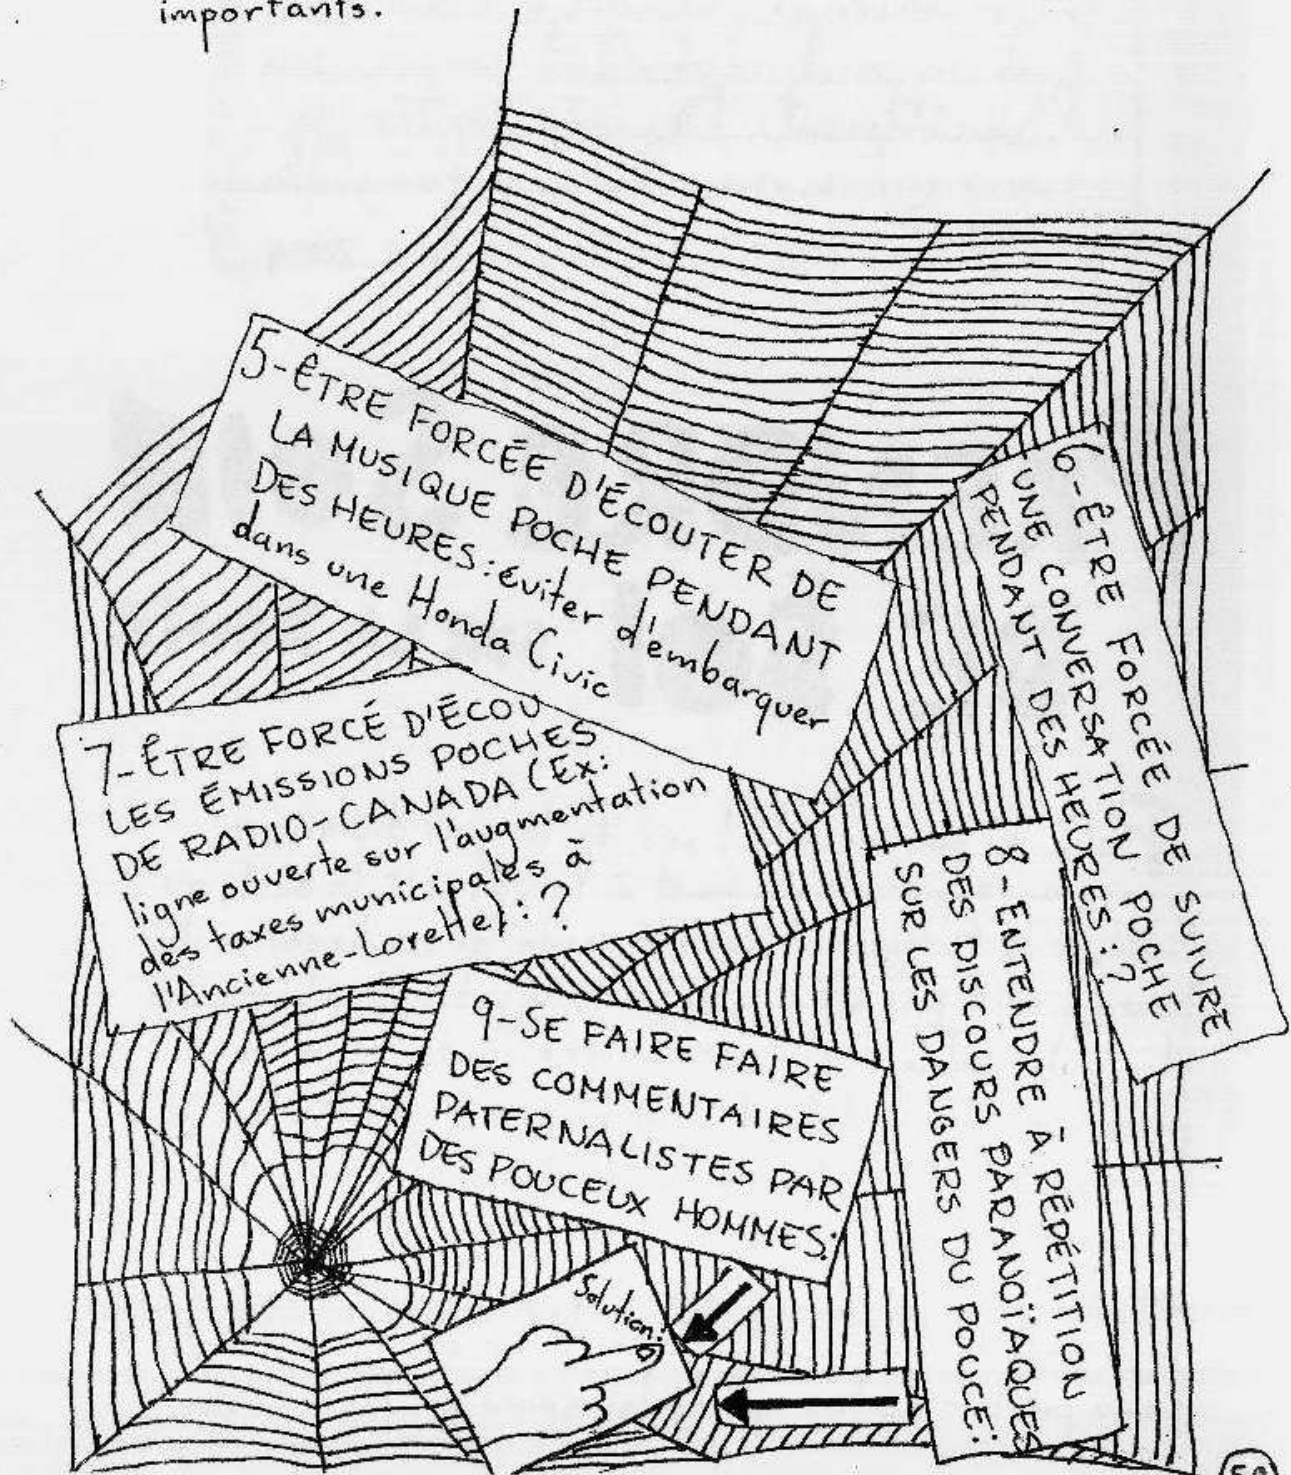 importants.
5-ÊTRE FORCÉE D'ÉCOUTER DE
LA MUSIQUE POCHE PENDANT
DES HEURES: éviter d'embarquer
dans une Honda Civic
6-ÊTRE FORCÉE DE SUIVRE
UNE CONVERSATION POCHE
PENDANT DES HEURES: ?
7-ÊTRE FORCÉ D'ÉCOU
LES ÉMISSIONS POCHES
DE RADIO-CANADA (Ex:
ligne ouverte sur l'augmentation
des taxes municipales à
l'Ancienne-Lorette): ?
8-ENTENDRE À RÉPÉTITION
DES DISCOURS PARANOÏAQUES
SUR LES DANGERS DU POUCE:
9-SE FAIRE FAIRE
DES COMMENTAIRES
PATERNALISTES PAR
DES POUCEUX HOMMES:
Solution: